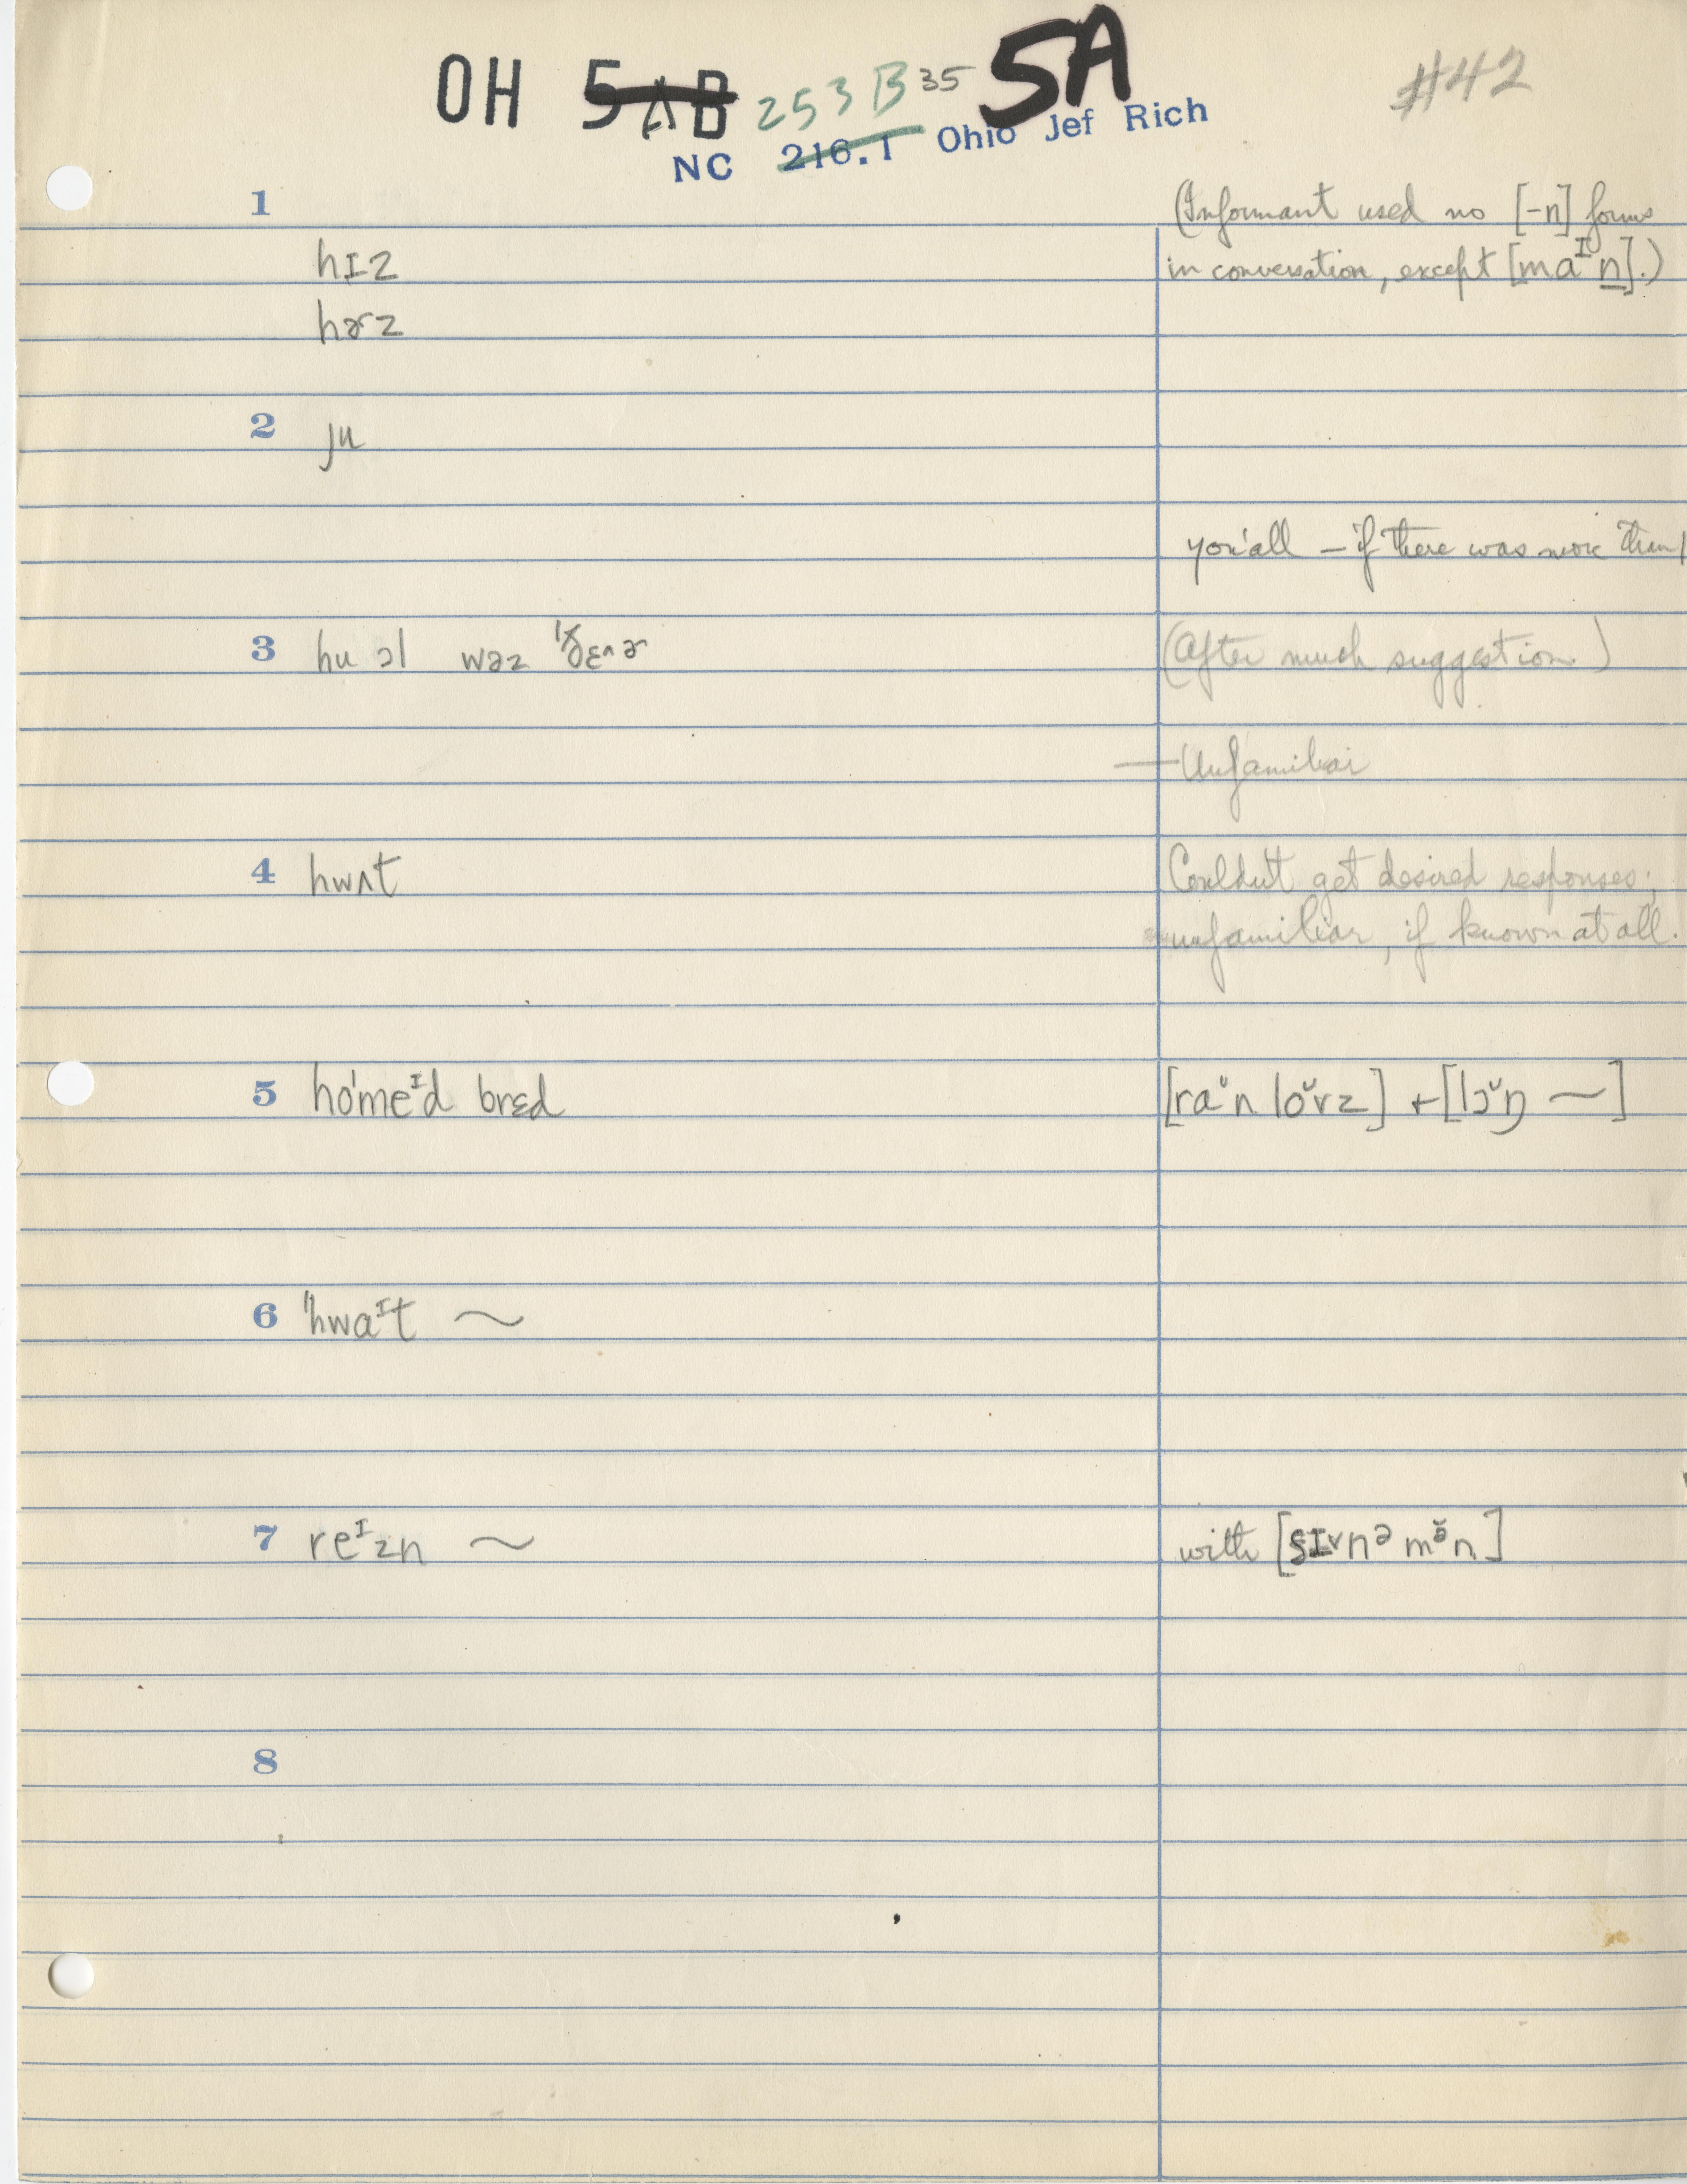 OH 5AB 253B 35 5A #42
NC 216.1 Ohio Jef Rich
1 (Informant used no [-n] forms
hɪz in conversation, except [maᴵn].)
hɚz
2 ju
you'all – if there was more than 1
3 hu ɔl wəz ðɛ˄ɚ (After much suggestion.)
— Unfamiliar
4 hwʌt Couldn't get desired responses;
unfamiliar, if known at all.
5 ho'meᴵd brɛd [raᵕn loᵕvz] + [lɔᵕŋ ~]
6 "hwaᴵt ~
7 reᴵzn ~ with
8